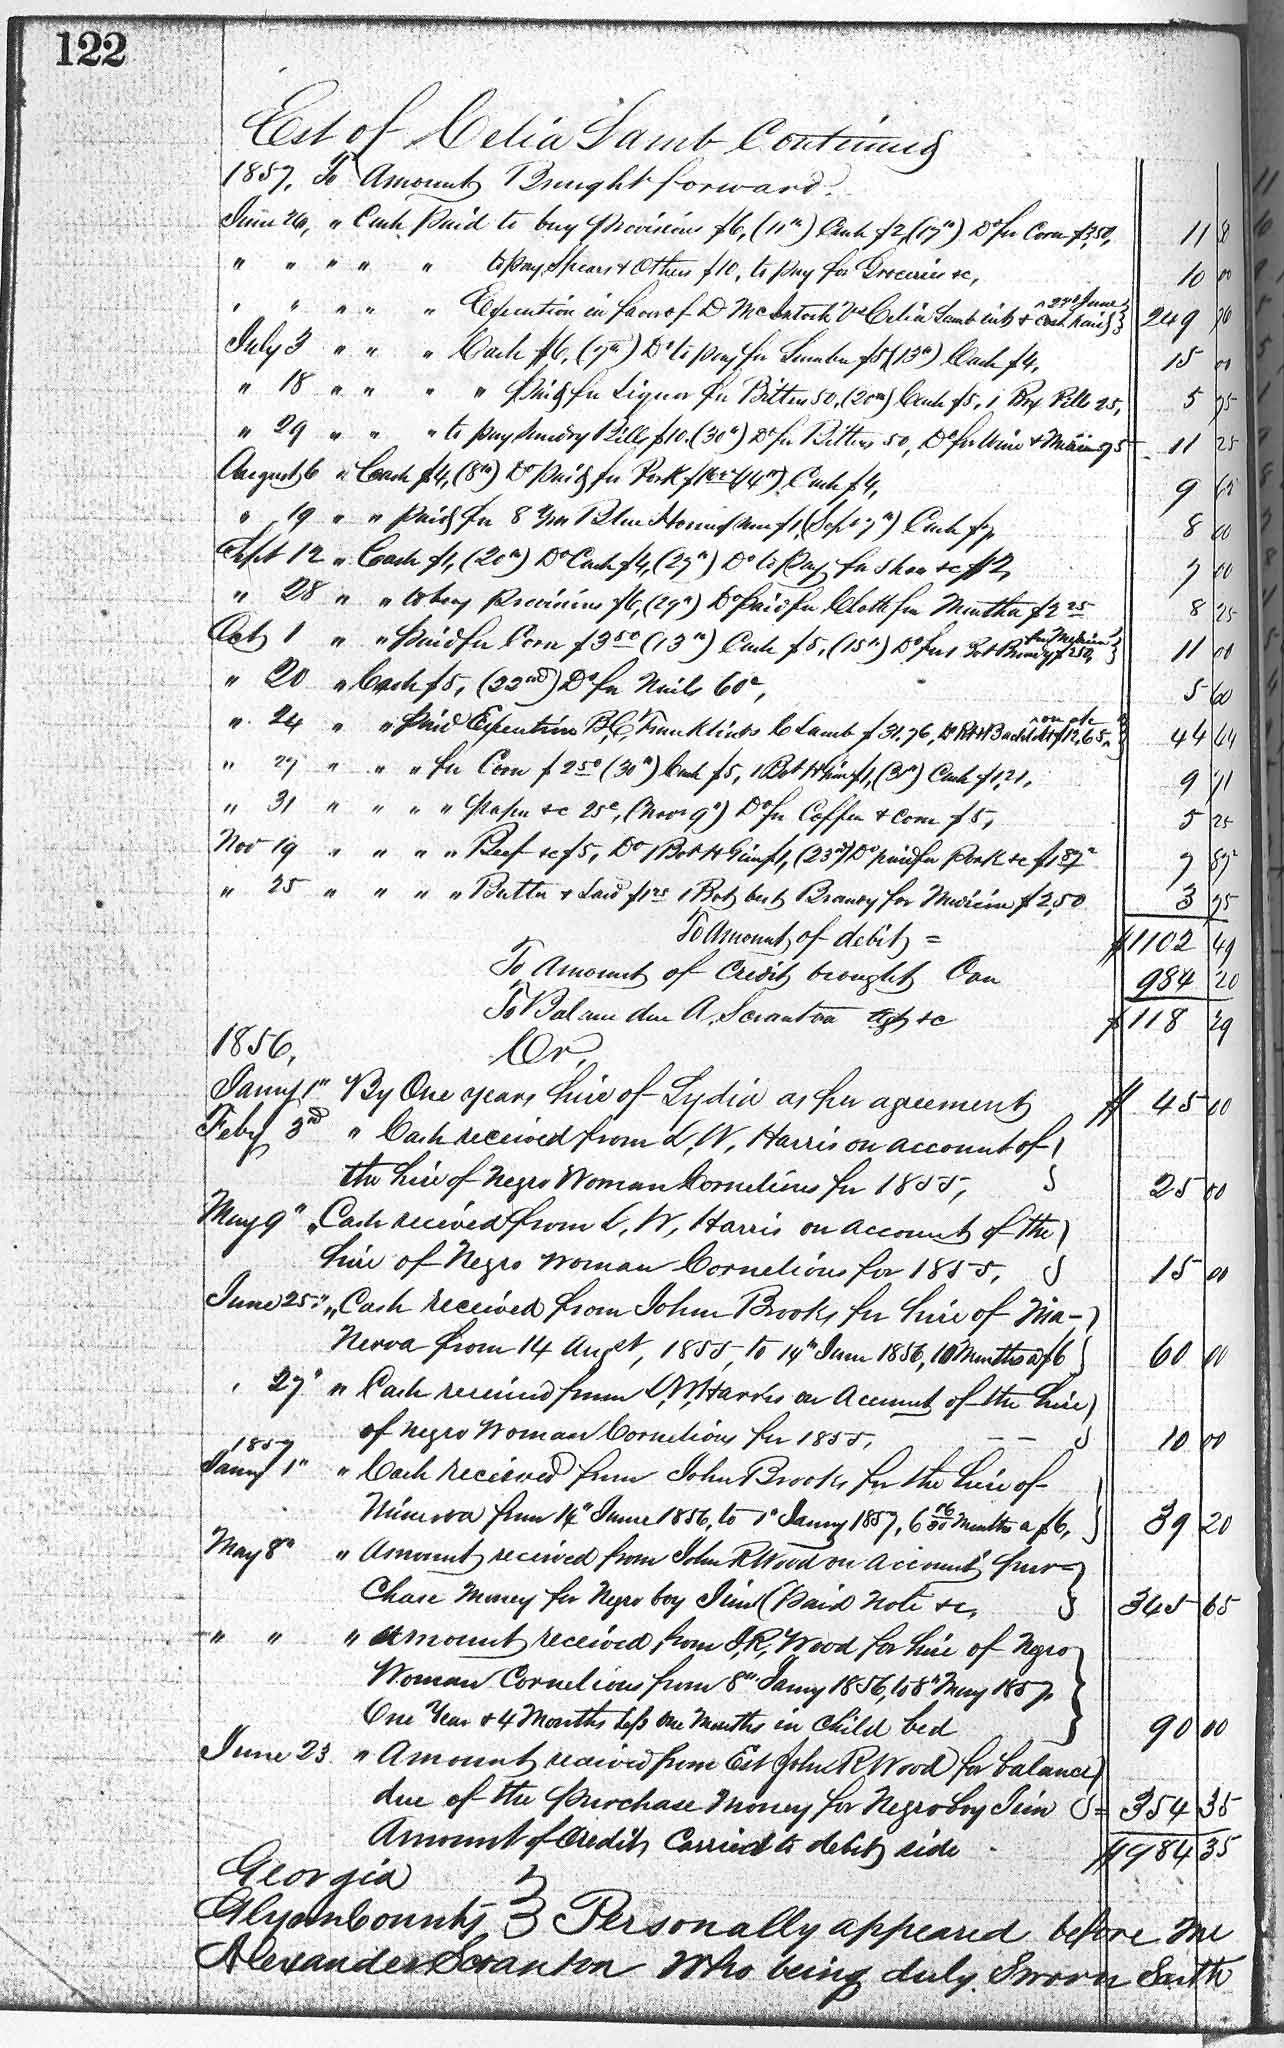 122
Est of Celia Lamb Continued
1857, To Amount Brought forward.
June 26, " Cash Paid to buy provisions $6, (11th) Cash $2, (17th) Do for Corn $3.50, 11 50
" " " " " to pay Spears & Others $10, to pay for Groceries &c, 10 00
" " " " " Execution in favor of D McIntosh Vs Celia Lamb int & cost paid 23d June 249 76
July 3 " " " Cash $6, (7th) Do to pay for Lumber $5, (13th) Cash $4, 15 00
" 18 " " " " paid for Liquor for Bitters 50, (20th) Cash $5, 1 Box Pills 25, 5 75
" 29 " " " to pay sundry Bills $10. (30th) Do for Bitters 50, Do for Wine & 75 11 25
August 6 " Cash $4, (8th) Do paid for Pork (14th) Cash $4, 9
" 19 " " paid for 8 Yds Blue Homespun $1, (Sept 7th) Cash $7, 8 00
Sept 12 " Cash $1, (20th) Do Cash $4, (27th) Do to Pay for shoes &c $2, 7 00
" 28 " " to buy Provisions $6, (29th) Do paid for Cloth for Martha $2 25 8 25
Oct 1 " " paid for Corn $3 50 (13th) Cash $5, (15th) Do for 1 Bot Brandy for Medicine $2.50, 11 00
" 20 " Cash $5, (22nd) Do for Nails 60c, 5 60
" 24 " " Paid Execution B, C, Franklin vs C Lamb $31.76, 44
" 27 " " " for Corn $2 50 (30th) Cash $5, 1 Bot H Gin $1, (31st) Cash $1,21, 9 71
" 31 " " " " paper &c 25c, (Novr 9th) Do for Coffee & Corn $5, 5 25
Nov 19 " " " " Beef &c $5, Do 1 Bot H Gin $1, (23rd) Do paid for Pork &c $1 87½ 7 87½
" 25 " " " " Butter & Lard $1 25 1 Bot best Brandy for Medicine $2,50 3 75
To Amount of debit = $1102 49
To Amount of Credit brought Over 984 20
To Balance due A. Scranton agt &c $118 29
1856, Cr.
Janny 1st By One years hire of Lydia as per agreement $45 00
Feby 3rd " Cash received from L, W, Harris on account of
the hire of Negro Woman Cornelious for 1855, 25 00
May 9th " Cash received from L, W, Harris on account of the
hire of Negro woman Cornelious for 1855, 15 00
June 25th " Cash received from John Brooks for hire of Min-
nerva from 14 Augst, 1855, to 14th June 1856, 10 Months a $6 60 00
" 27th " Cash received from L. W, Harris on Account of the hire
of negro Woman Cornelious for 1855, 10 00
1857
Janny 1st " Cash received from John Brooks for the hire of
Minerva from 14th June 1856, to 1st Janny 1857, 6 16/30 Months a $6, 39 20
May 8th " Amount received from John R Wood on account pur-
Chase Money for Negro boy Jim (Paid Note &c, 345 65
" " " Amount received from J, R, Wood for hire of Negro
Woman Cornelious from 8th Janny 1856, to 8th May 1857,
One Year & 4 Months less one Months in Child bed 90 00
June 23 " Amount received from Est John R Wood for balance
due of the purchase Money for Negro boy Jim = 354 35
Amount of Credit Carried to debit side $984 35
Georgia
Glynn County } Personally appeared before me
Alexander Scranton Who being duly Sworn Saith